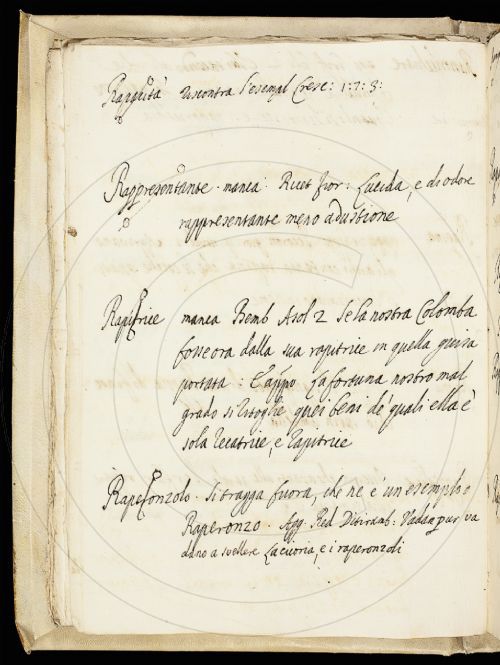 Rappicita riscontra l'esempl Cresc: 1:7:3:
Rappresentante · manca · Ricet fior: Lucida, e di odore
rappresentante meno adustione
Rapitrice manca Bemb Asol 2 Se la nostra Colomba
fosse ora dalla sua rapitrice in quella guisa
portata: E appo La fortuna nostro mal
grado si ritoglie quei beni de' quali ella è
sola recatrice, e rapitrice
Raperonzolo · si tragga fuora, che ne è un esempl o
Raperonzo · Agg Red Ditiramb: Vadan pur, va
dano a svellere La cicoria, e i raperonzoli